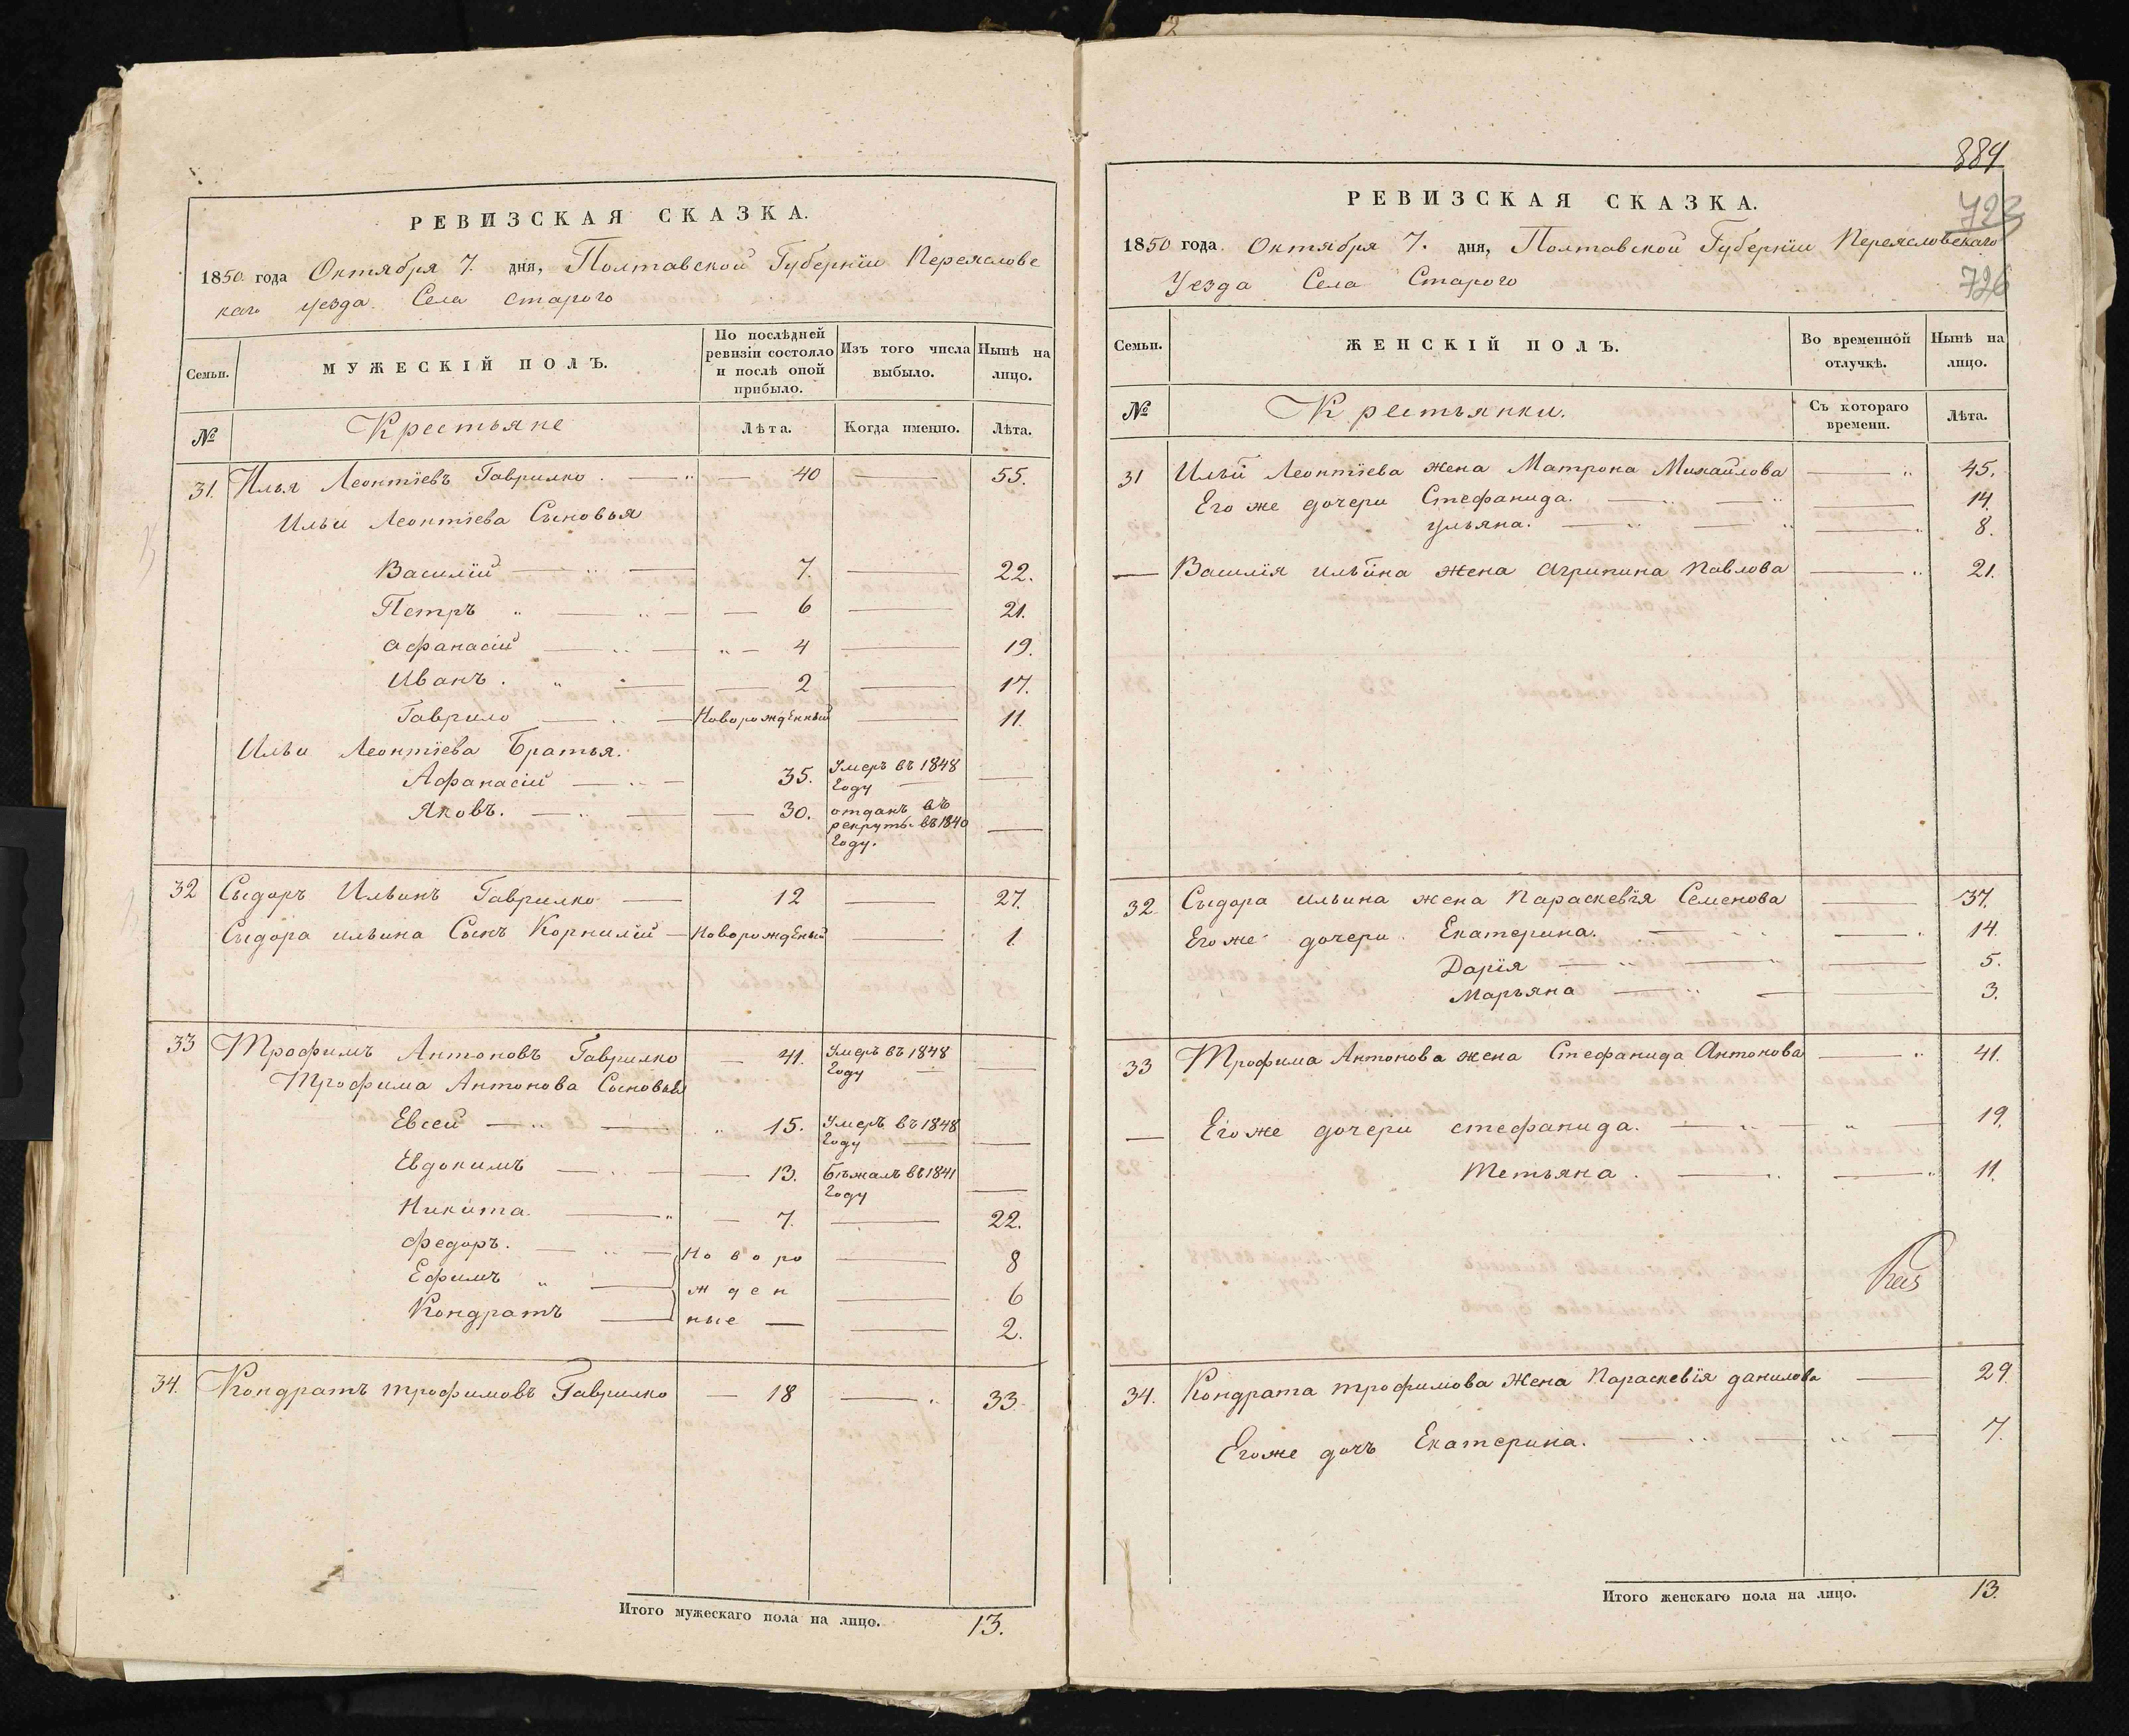 РЕВИЗСКАЯ СКАЗКА.
1850 года Октября 7. дня, Полтавской Губернїи Переяславс
каго уезда Села Старого
Семьи. МУЖЕСКІЙ ПОЛЪ. По послѣдней ревизіи состояло и послѣ оной прибыло. Изъ того числа выбыло. Нынѣ на лицо.
№ Крестьяне Лѣта. Когда именно. Лѣта.
31. Илья Леонтїевъ Гаврилко. — 40 — 55.
Ильи Леонтїева Сыновья
Василїй — 7. — 22.
Петръ — 6 — 21.
Афанасїй — 4 — 19.
Иванъ. — 2 — 17.
Гаврило — Новорожденный — 11.
Ильи Леонтїева Братья.
Афанасїй — 35. Умеръ въ 1848 Году —
Яковъ. — 30. отданъ въ рекруты въ 1840 Году. —
32 Сыдоръ Ильинъ Гаврилко — 12 — 27.
Сыдора ильина Сынъ Корнилїй — Новорожденый — 1
33 Трофимъ Антоновъ Гаврилко — 41. Умеръ въ 1848 Году —
Трофима Антонова Сыновья
Евсей — 15. Умеръ въ 1848 Году —
Евдокимъ — 13. Бѣжалъ въ 1841 Году —
Никита — 7. — 22.
Федоръ. — Но во ро — 8
Ефимъ — жден — 6
Кондратъ — ные — 2.
34. Кондратъ трофимовъ Гаврилко — 18 — 33.
Итого мужескаго пола на лицо. 13.
884
723
726
РЕВИЗСКАЯ СКАЗКА.
1850 года Октября 7. дня, Полтавской Губернїи Переясловскаго
Уезда Села Старого
Семьи. ЖЕНСКІЙ ПОЛЪ. Во временной отлучкѣ. Нынѣ на лицо.
№ Крестьянки. Съ котораго времени. Лѣта.
31 Ильи Леонтїева жена Матрона Михайлова — 45.
Его же дочери Стефанида. — 14.
Ульяна. — 8.
— Василїя ильина жена Агрипина Павлова — 21.
32. Сыдора ильина жена Параскевїя Семенова — 37.
Его же дочери Екатерина. — 14.
Дарїя — 5.
Марьяна — 3.
33 Трофима Антонова жена Стефанида Антонова — 41.
— Его же дочери стефанида. — 19.
Тетьяна. — 11.
34. Кондрата трофимова жена Параскевїя данилова — 29.
Его же дочъ Екатерина. — 7.
Итого женскаго пола на лицо. 13.